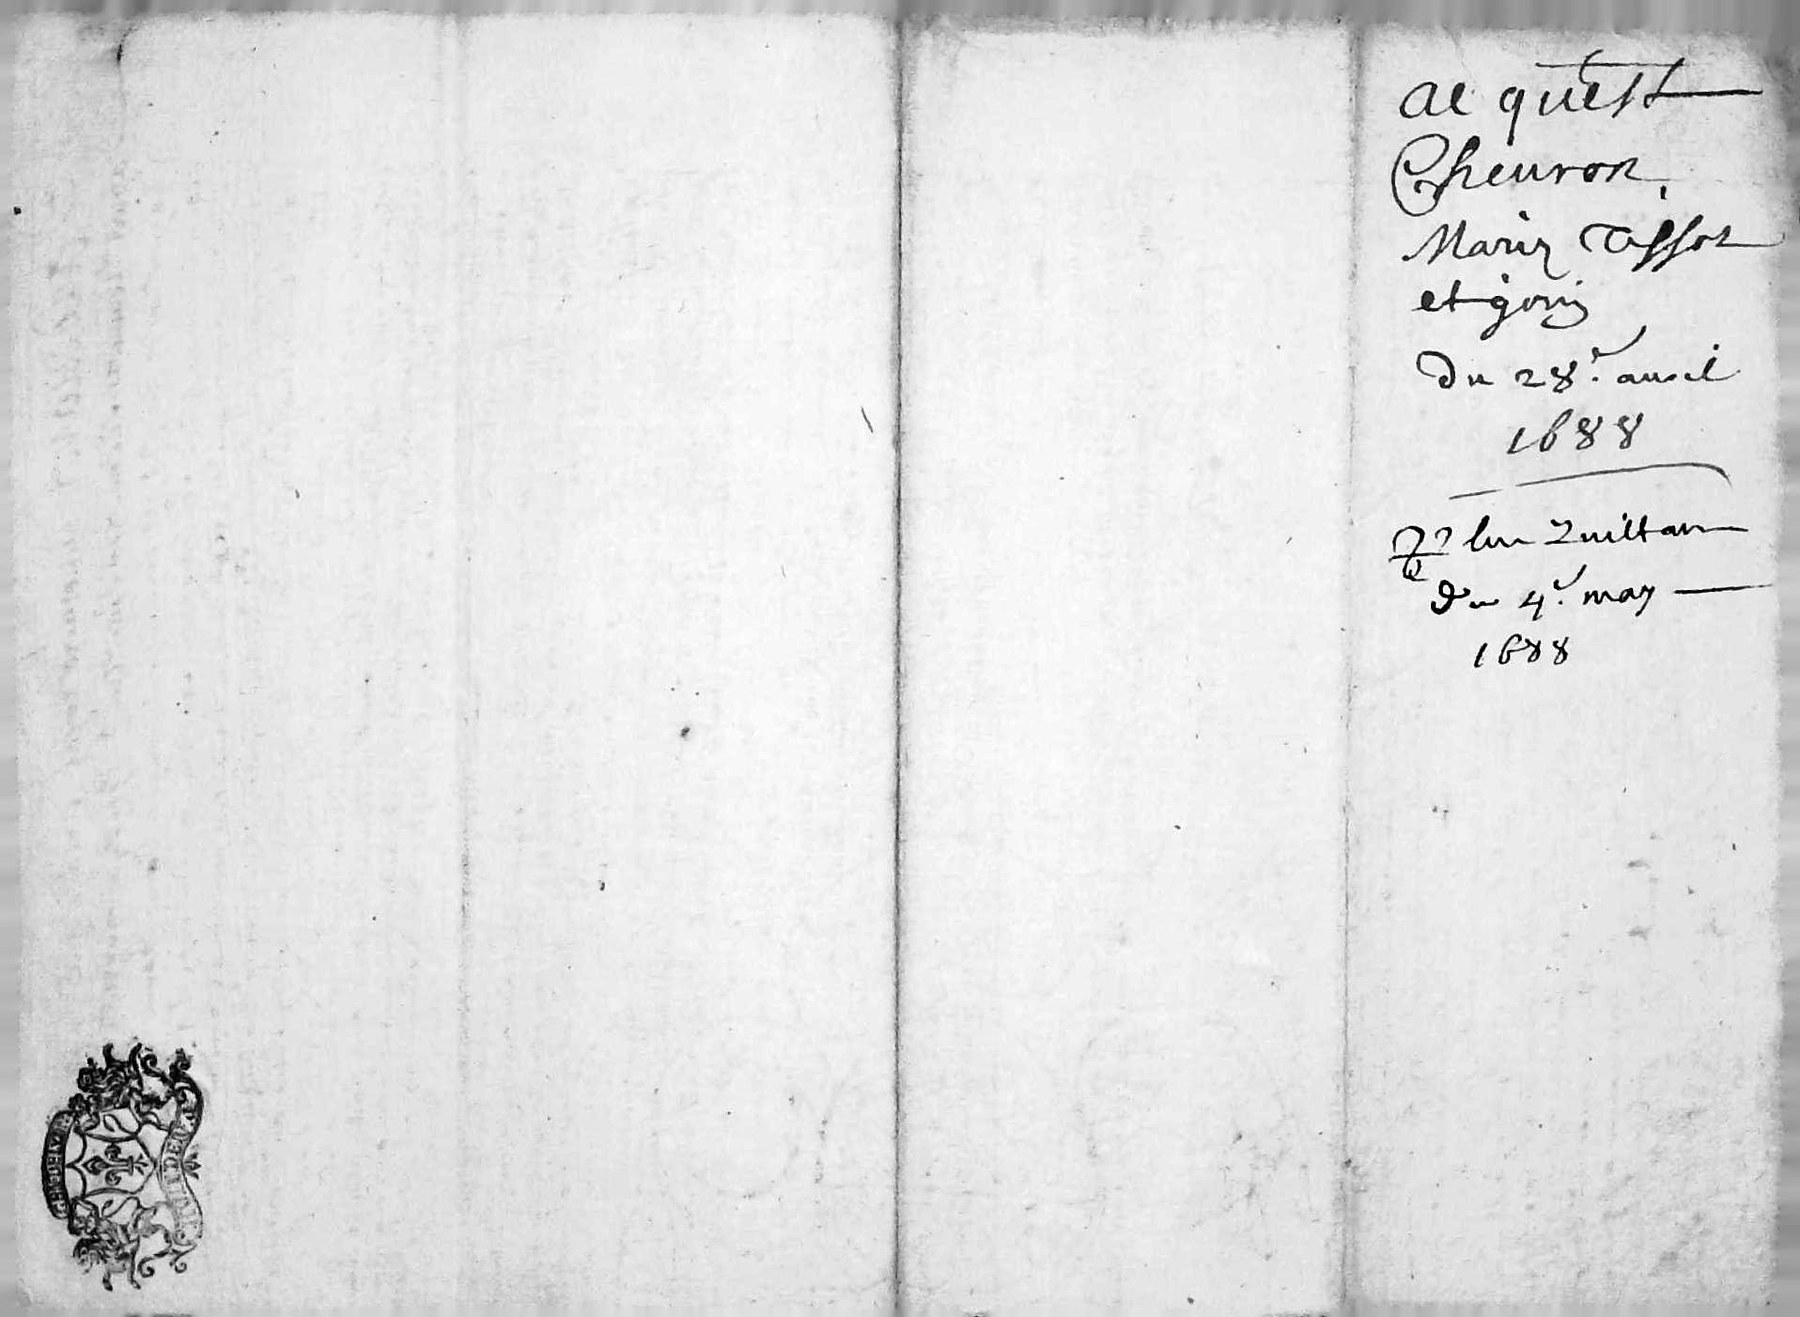 acquest
Cheuron
Marie Tissot
et gorin
Du 28e. auril
1688
lune Quittan
du 4e. may
1688